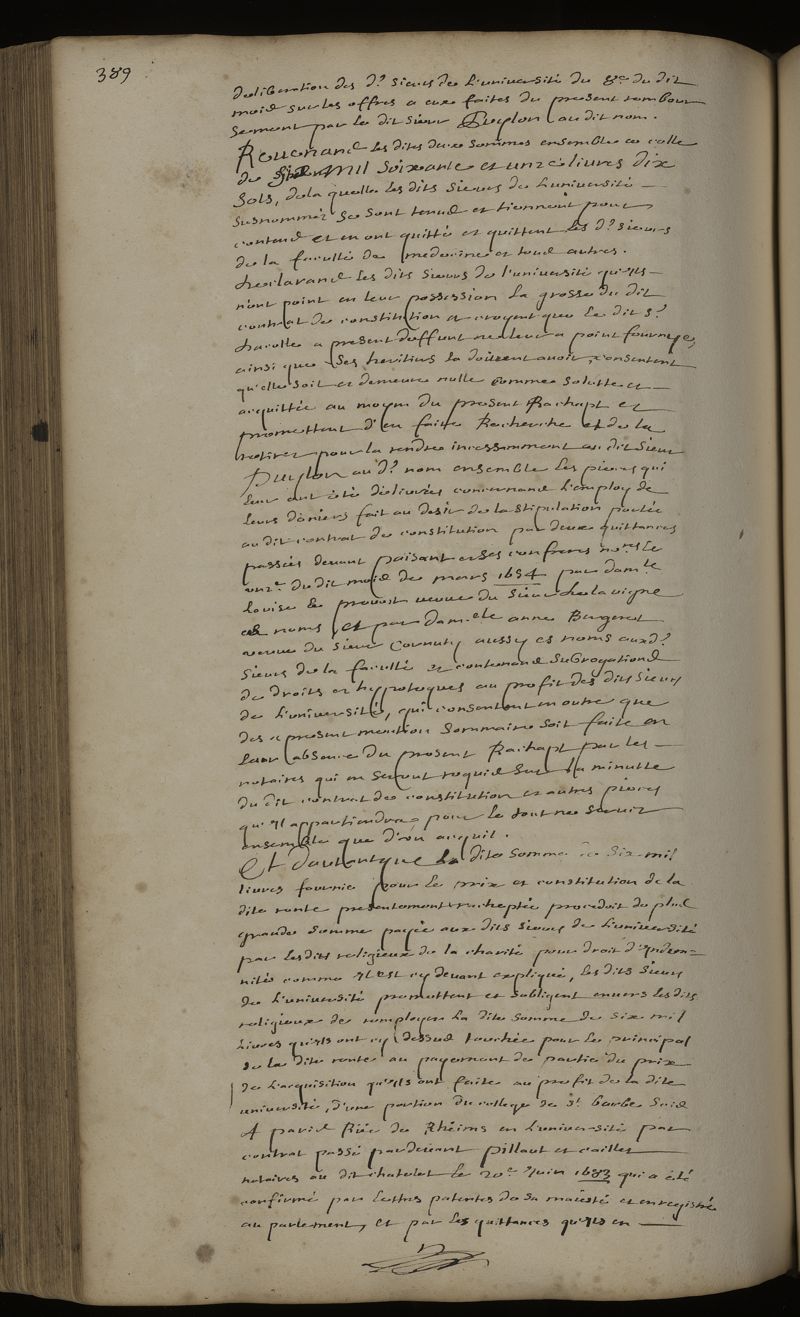 389
deliberation des d.s sieurs de l'université du 8e du dit
mois sur les offres a eux faites du present rembour
sement par le dit sieur Puylon au dit nom.
Revenans les dites deux sommes ensemble a celle
de Six Mil soixante et unze livres dix
sols, de la quelle les dits sieurs de l'université
susnommés se sont tenus et tiennent pour
contens et en ont quitté et quittent les d.s sieurs
de la faculté de medecine et tous autres.
declarans les dits sieurs de l'université qu'ils
n'ont point en leur possession la grosse du dit
contrat de constitution et croyent que le dit s.r
a present deffunt ne leur a point fournye,
ainsi que ses heritiers la doivent avoir, consentent
qu'elle soit et demeure nulle comme solutte et
acquittée au moyen du present Rachapt et
promettent d'en faire Recherche et de la
retirer pour la rendre incessamment au dit sieur
Puylon au d.t nom ensemble les pieces qui
leur ont été delivrées concernans l'employ de
leurs deniers fait au desir de la stipulation portée
au dit contrat de constitution par deux quittances
passées devant paisant et ses confreres no.res le
unz.e du dit mois de mars 1654 par dam.lle
Louise le prevost veuve du sieur de la vigne
es noms, et par dam.elle anne Bergeret
veuve du sieur Cornuty aussy es noms aux d.s
sieurs de la faculté et contenans subrogations
de droits et hypoteques au profit des dits sieurs
de l'université, qui consentent en outre que
des a present mention sommaire soit faite en
leur absence du present Rachapt par les
notaires qui en seront requis sur la minutte
du dit contrat de constitution et autres pieces
qu'il appartiendra pour le tout ne servir
ensemble que d'un acquit.
Et d'autant que la dite somme de six mil
livres fournie pour le prix et constitution de la
dite rente presentement racheptée procedoit de plus
grande somme payée aux dits sieurs de l'université
par les dits religieux de la charité pour droit d'Indem=
nité comme il est cy devant expliqué, les dits sieurs
de l'université promettent et s'obligent envers les dits
religieux de remployer la dite somme de six mil
livres qu'ils ont cy dessus touchée pour le principal
de la dite rente au payement de partie du prix
de l'acquisition qu'ils ont faite au profit de la dite
université, d'une portion du college de s.te barbe scis
A paris Rüe de Rheims en l'université par
contrat passé pardevant pillaut et caillet
notaires au dit chatelet le 20.e Juin 1683 qui a été
confirmé par lettres patentes de sa majesté et enregistré
au parlement, et par les quittances qu'ils en